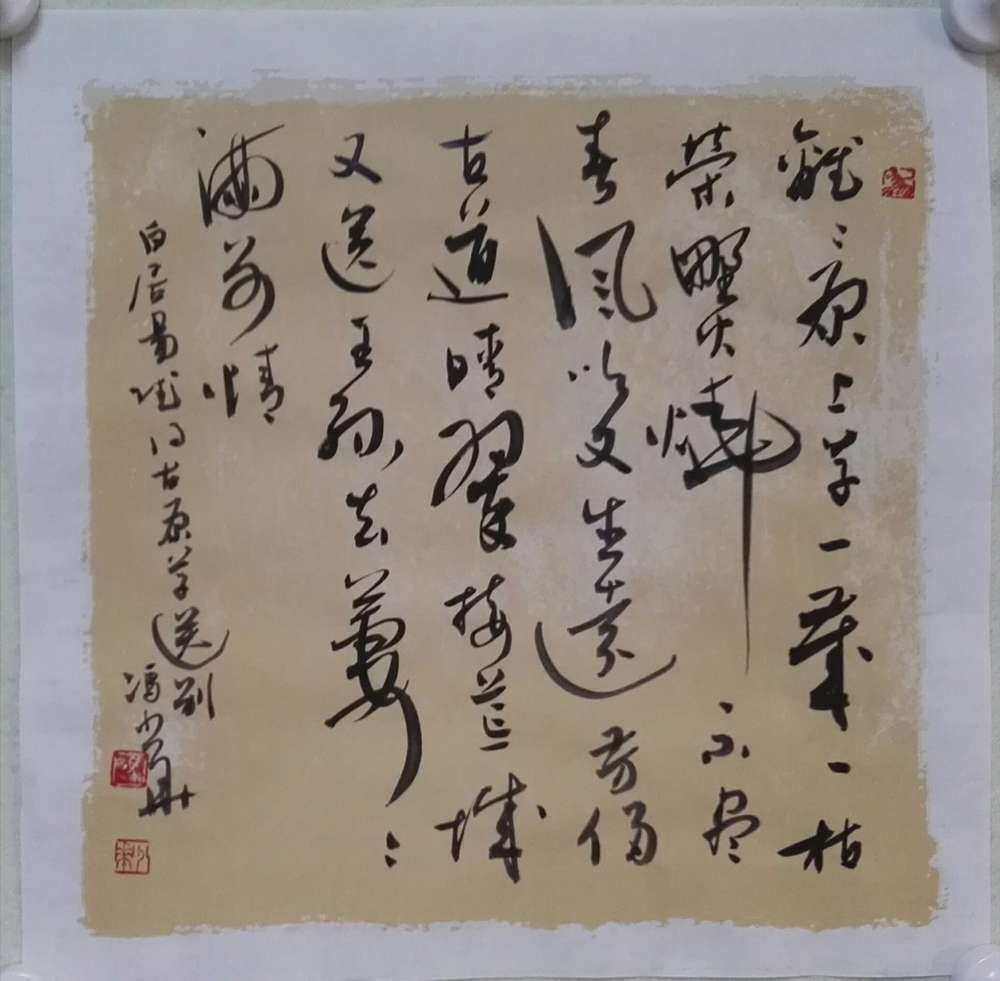 離〻原上草一歲一枯
榮野火燒不尽
春風吹又生遠芳侵
古道晴翠接荒城
又送王孫去萋〻
滿別情
白居易賦得古原草送別